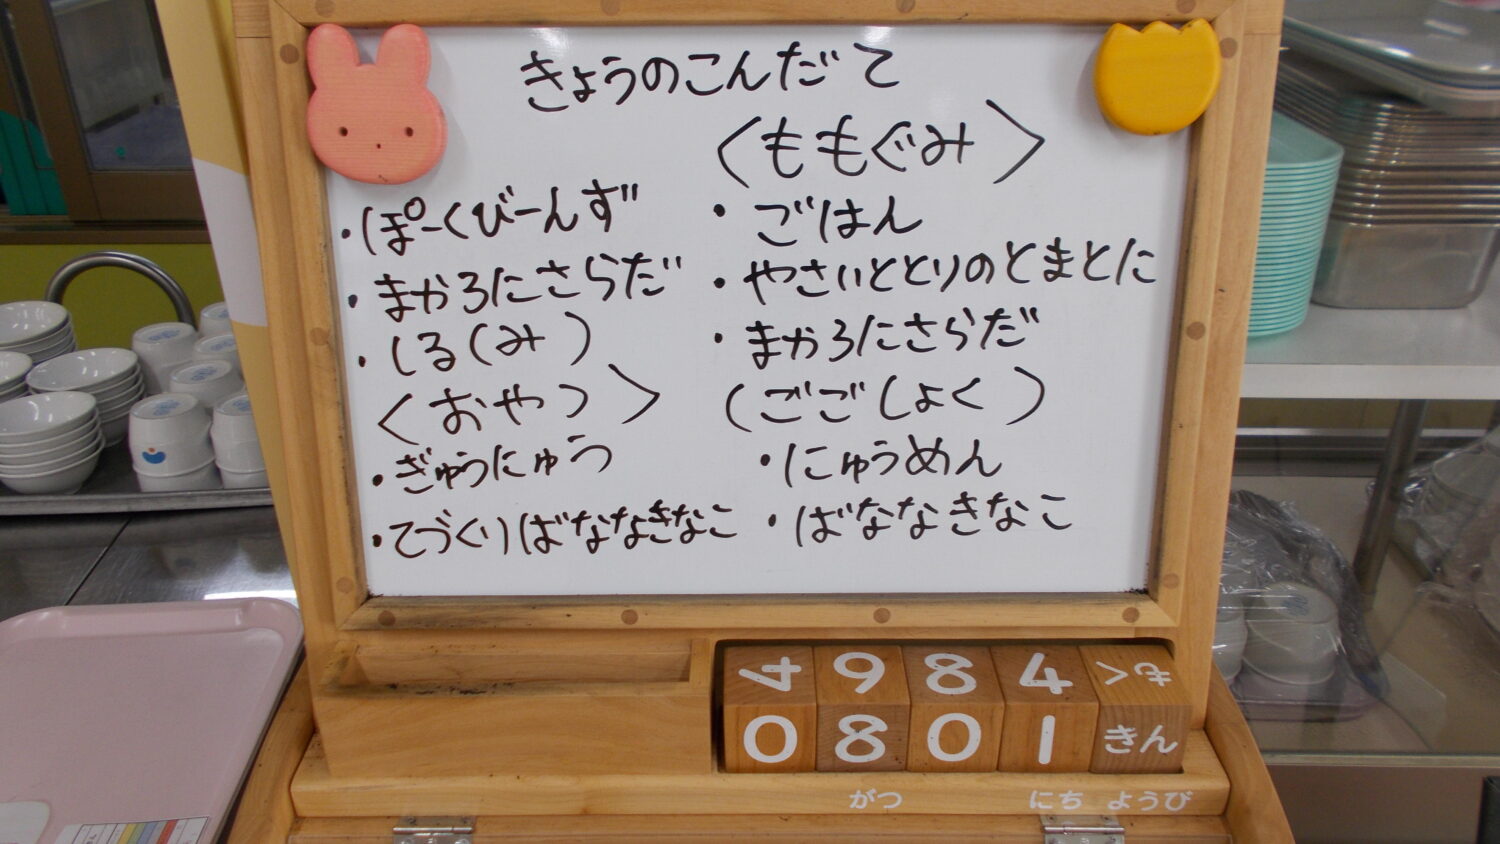 きょうのこんだて
・ぽーくびーんず
・まかろにさらだ
・しる(み)
〈おやつ〉
・ぎゅうにゅう
・てづくりばななきなこ
〈ももぐみ〉
・ごはん
・やさいととりのとまとに
・まかろにさらだ
(ごごしょく)
・にゅうめん
・ばななきなこ
4 9 8 4 もく
0 8 0 1 きん
がつ にち ようび